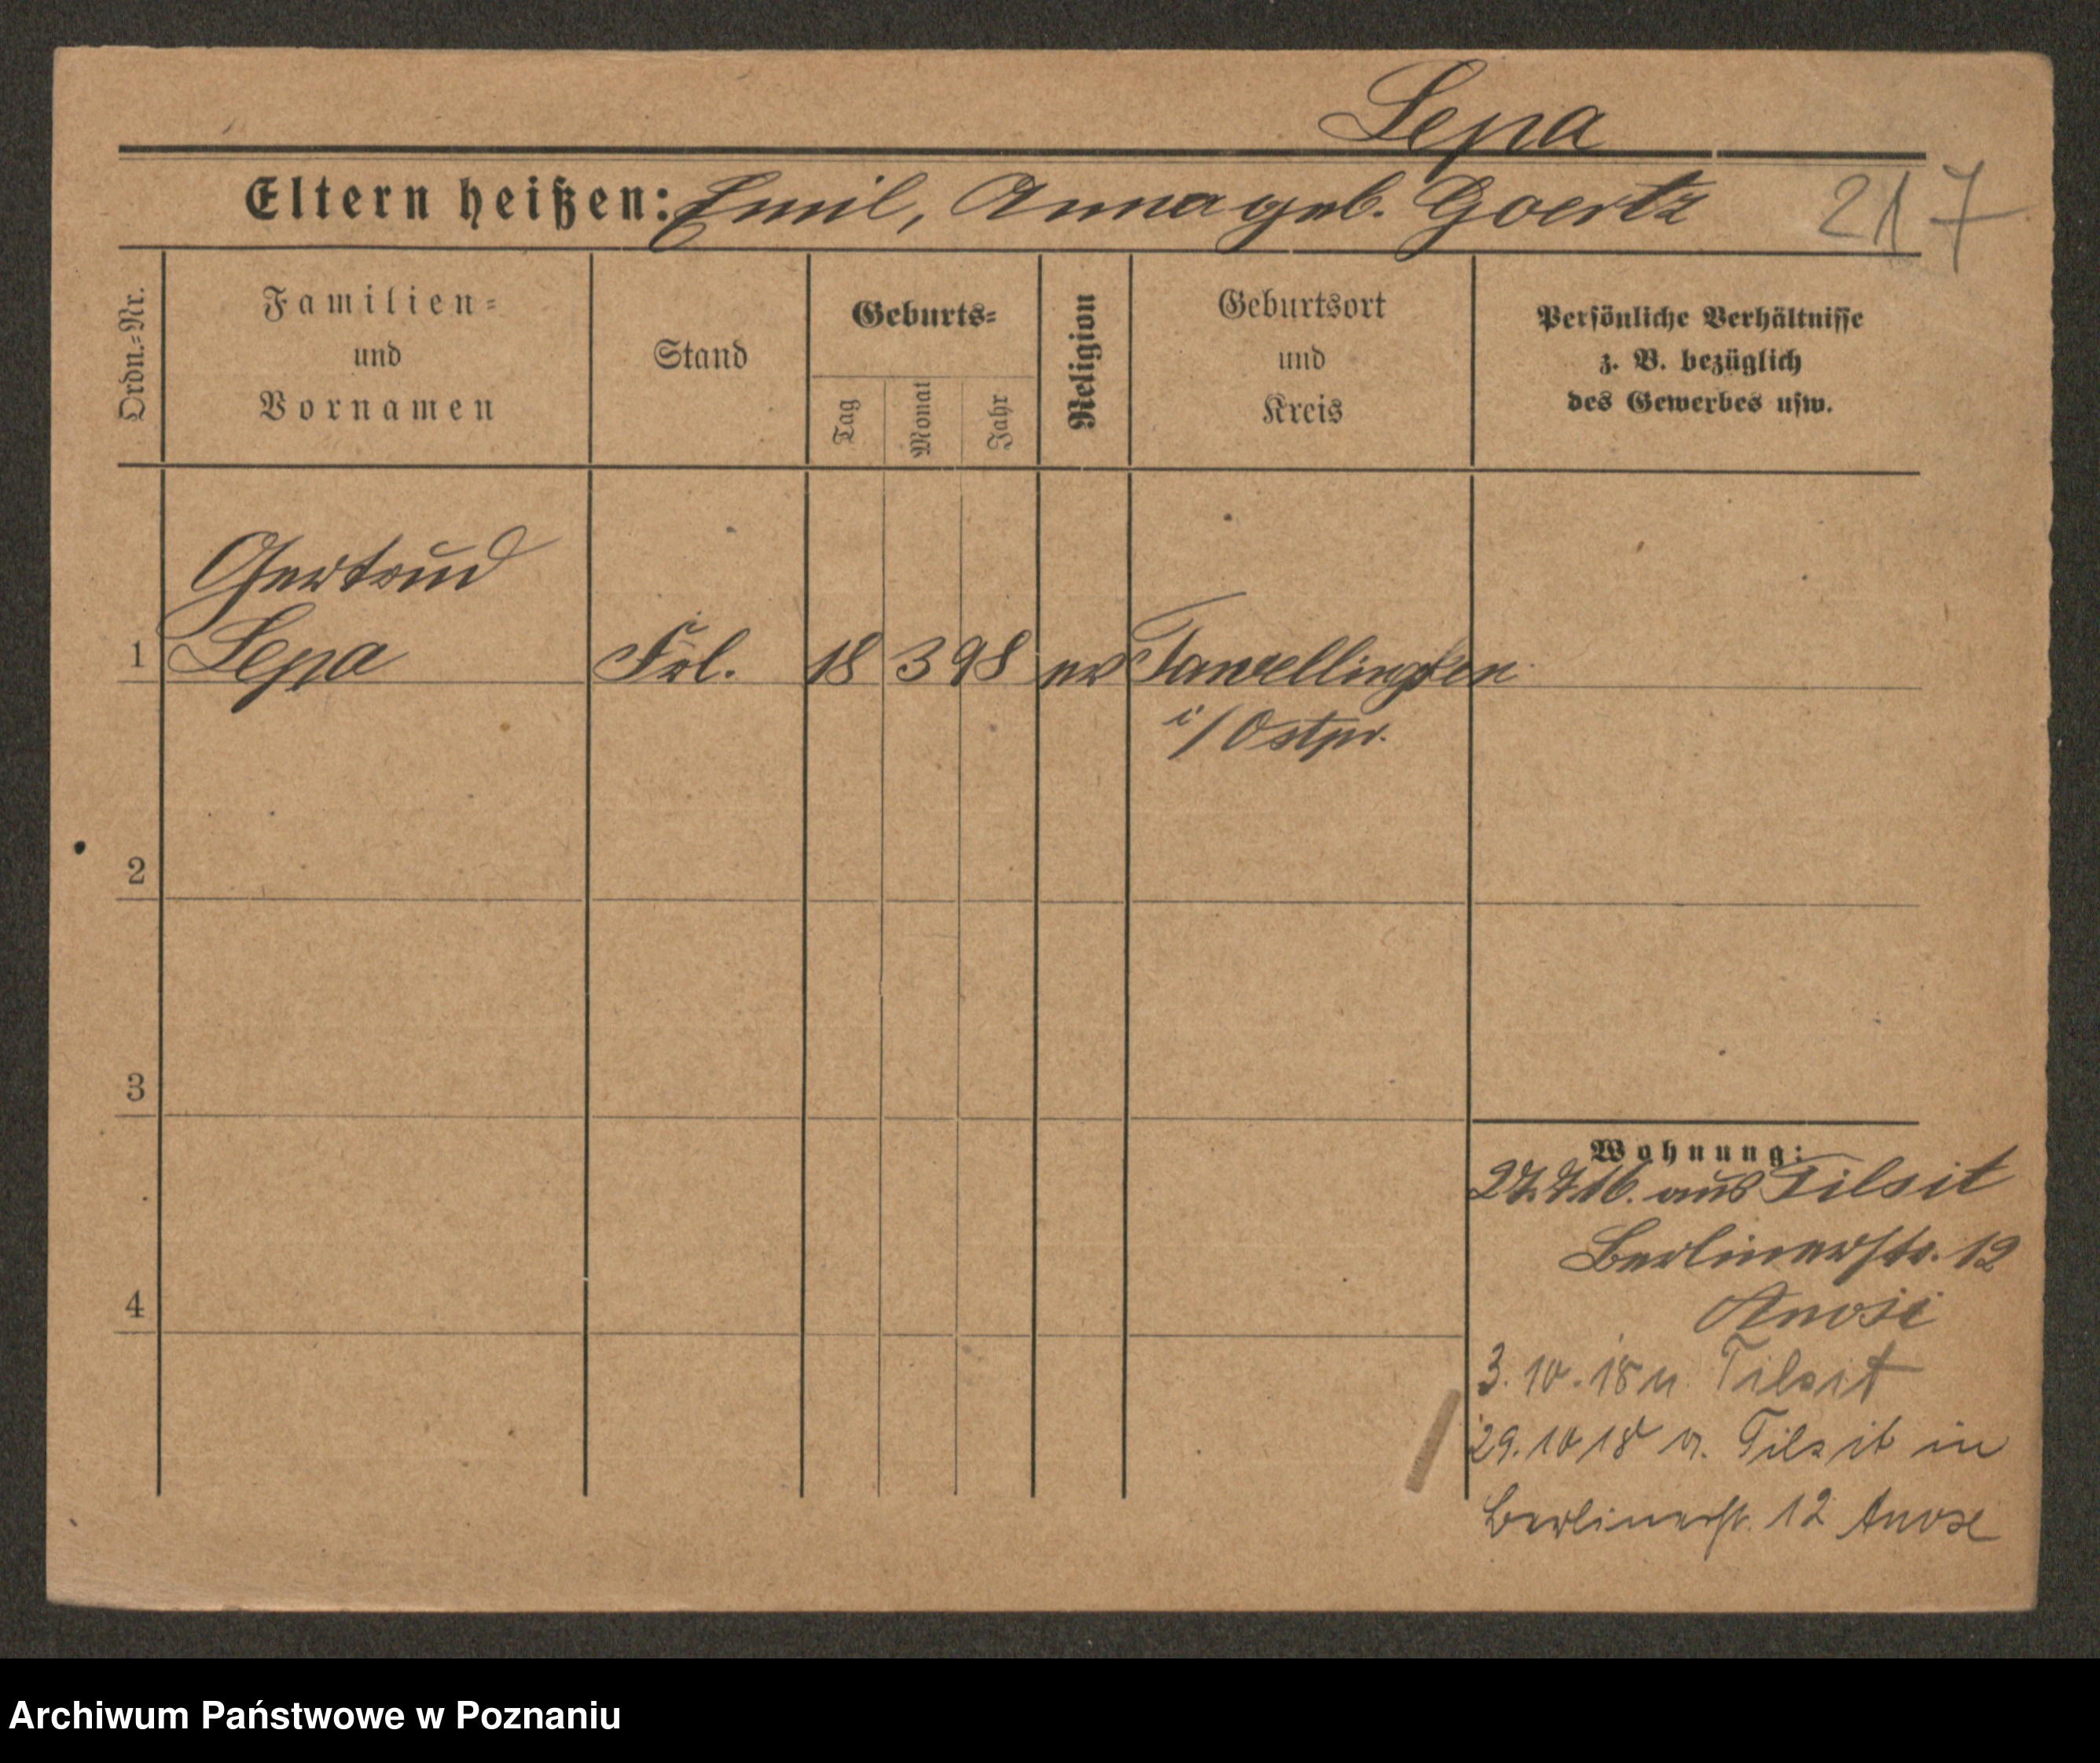 Lepa
Eltern heißen: Emil, Anna geb. Goertz 217
Ordn.=Nr.
Familien=
und
Vornamen
Stand
Geburts=
Tag
Monat
Jahr
Religion
Geburtsort
und
Kreis
Persönliche Verhältnisse
z. B. bezüglich
des Gewerbes usw.
Gertrud
1 Lepa Frl. 18 3 98 ev
i/Ostpr.
2
3
4
Wohnung:
27.7.16. aus Tilsit
Berlinerstr. 12
3.10.18 n. Tilsit
29.10 18 v. Tilsit in
Berlinerstr. 12
Archiwum Państwowe w Poznaniu